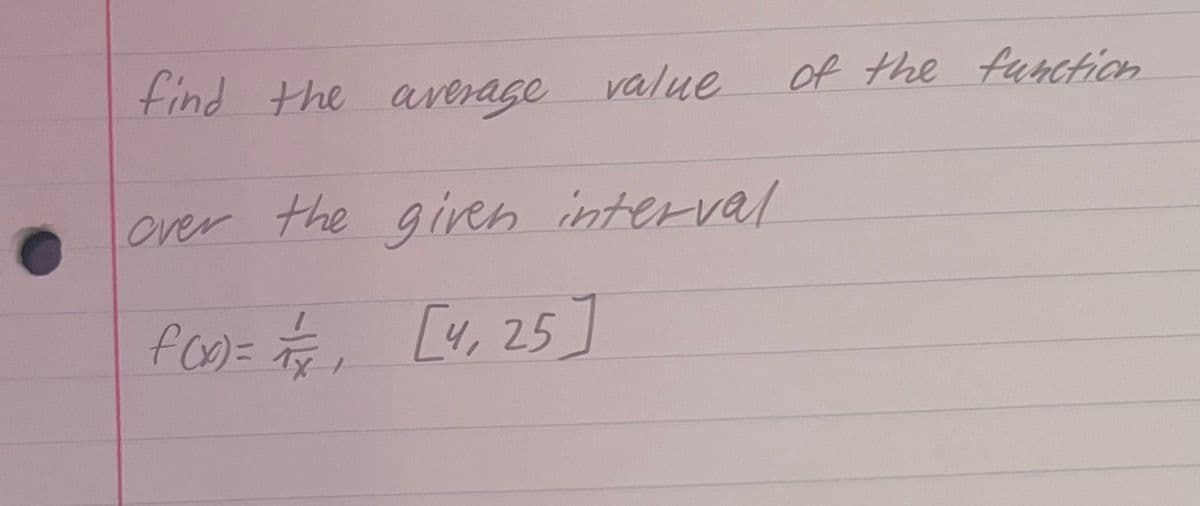 find the average value of the function
over the given interval
f(x) = 1/√x, [4, 25]